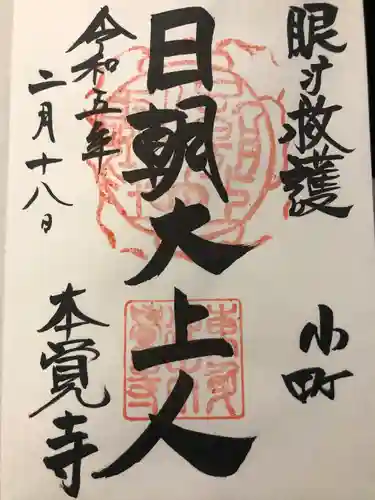 眼守救護
小町
日朝大上人
令和五年
二月十八日
本覚寺